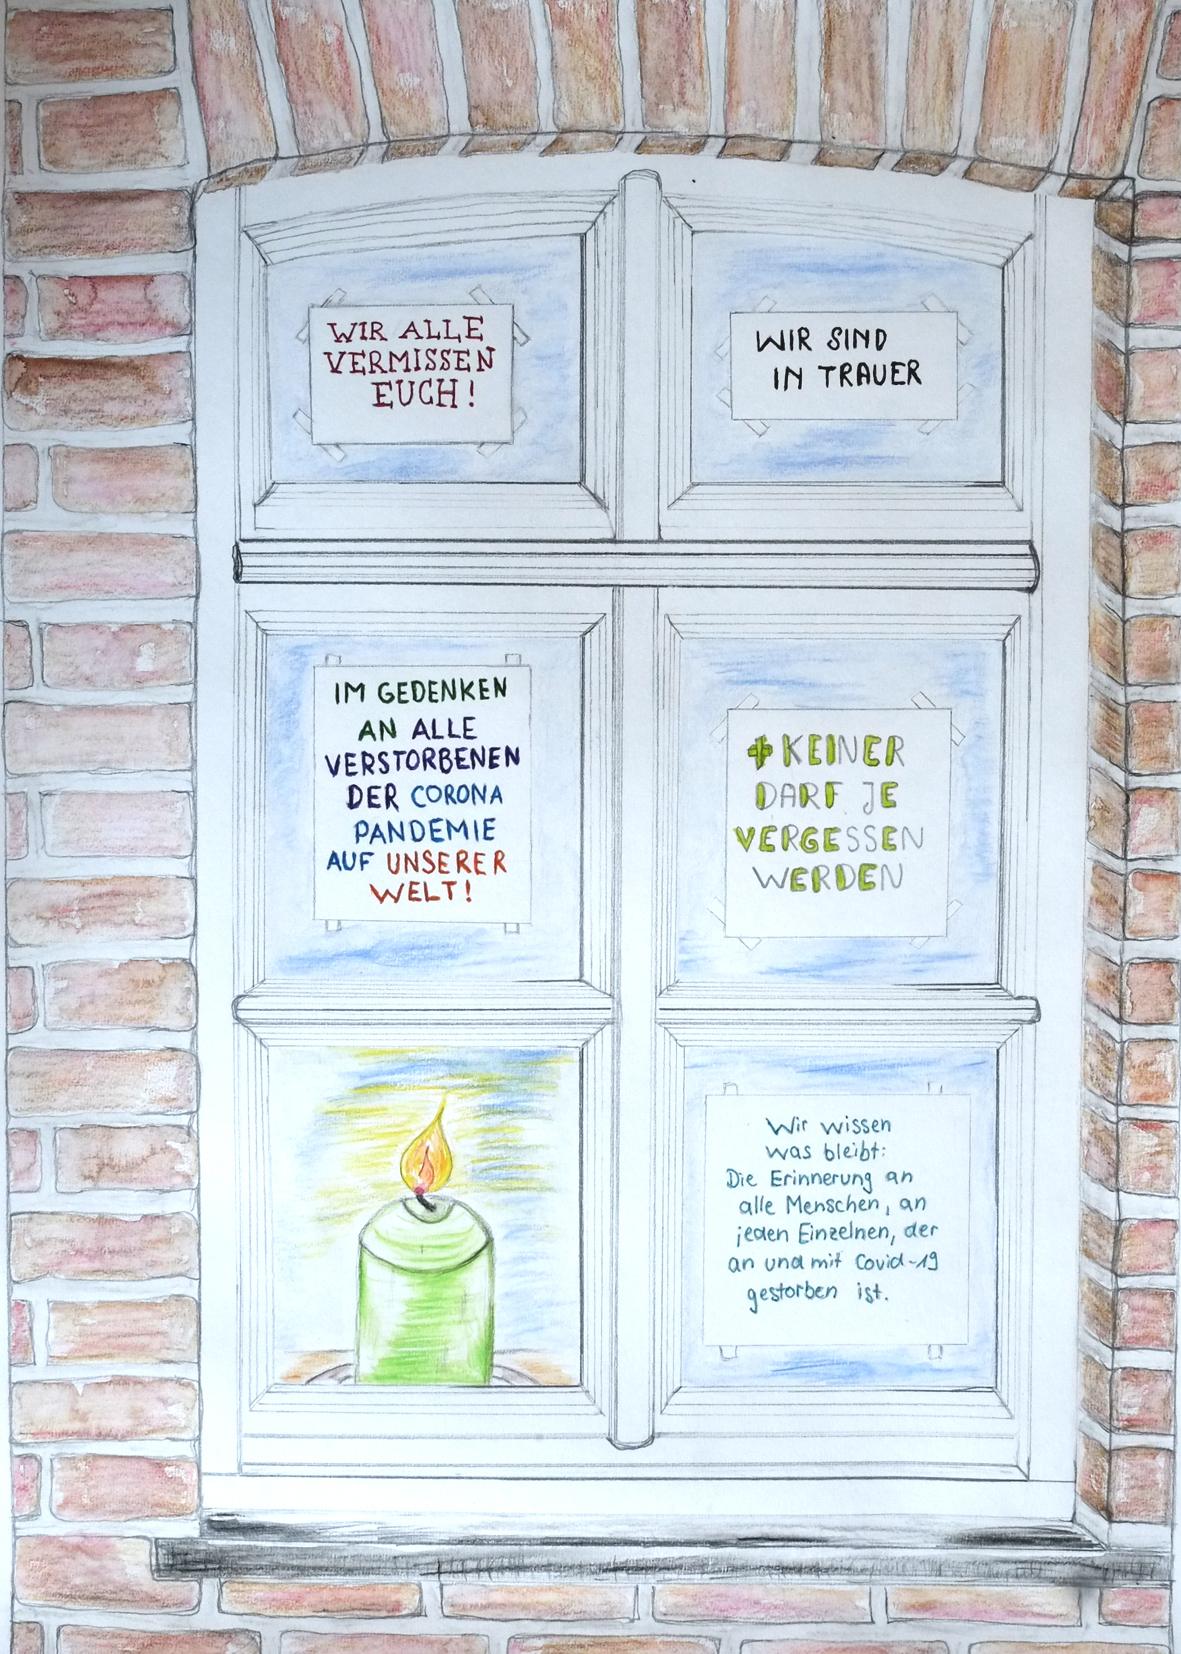 WIR ALLE
VERMISSEN
EUCH!
WIR SIND
IN TRAUER
IM GEDENKEN
AN ALLE
VERSTORBENEN
DER CORONA
PANDEMIE
AUF UNSERER
WELT!
KEINER
DARF JE
VERGESSEN
WERDEN
Wir wissen
was bleibt:
Die Erinnerung an
alle Menschen, an
jeden Einzelnen, der
an und mit Covid-19
gestorben ist.